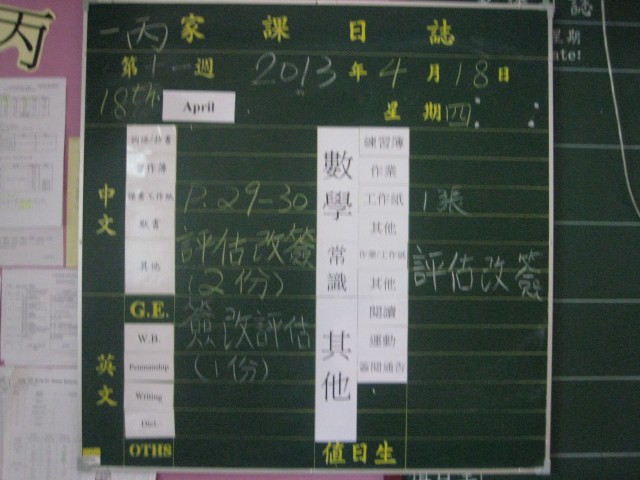 丙
一丙家課日誌
第十一週 2013年4月18日
18th April 星期四
中文
作業
P.29-30
其他
評估改簽
(2份)
英文
G.E.
簽改評估
W.B.
(1份)
Penmanship
Writing
Dict.
OTHS
數學
練習簿
作業
工作紙 1張
其他
常識
作業/工作紙 評估改簽
其他
其他
閱讀
運動
簽閱通告
值日生
誌
星期